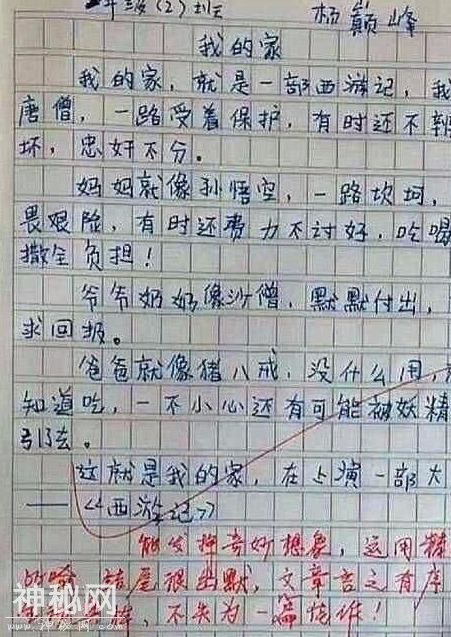 年级(2)班 杨巅峰
我的家
我的家，就是一部西游记，我
唐僧，一路受着保护，有时还不辨
坏，忠奸不分。
妈妈就像孙悟空，一路坎坷，
畏艰险，有时还费力不讨好，吃喝
撒全负担！
爷爷奶奶像沙僧，默默付出，
求回报。
爸爸就像猪八戒，没什么用，
知道吃，一不小心还有可能被妖精
引去。
这就是我的家，在上演一部大
——《西游记》
能发挥奇妙想象，运用
的喻 结尾很幽默，文章言之有序
不失为一篇佳作！
神秘网
WWW.SHENMIW.COM